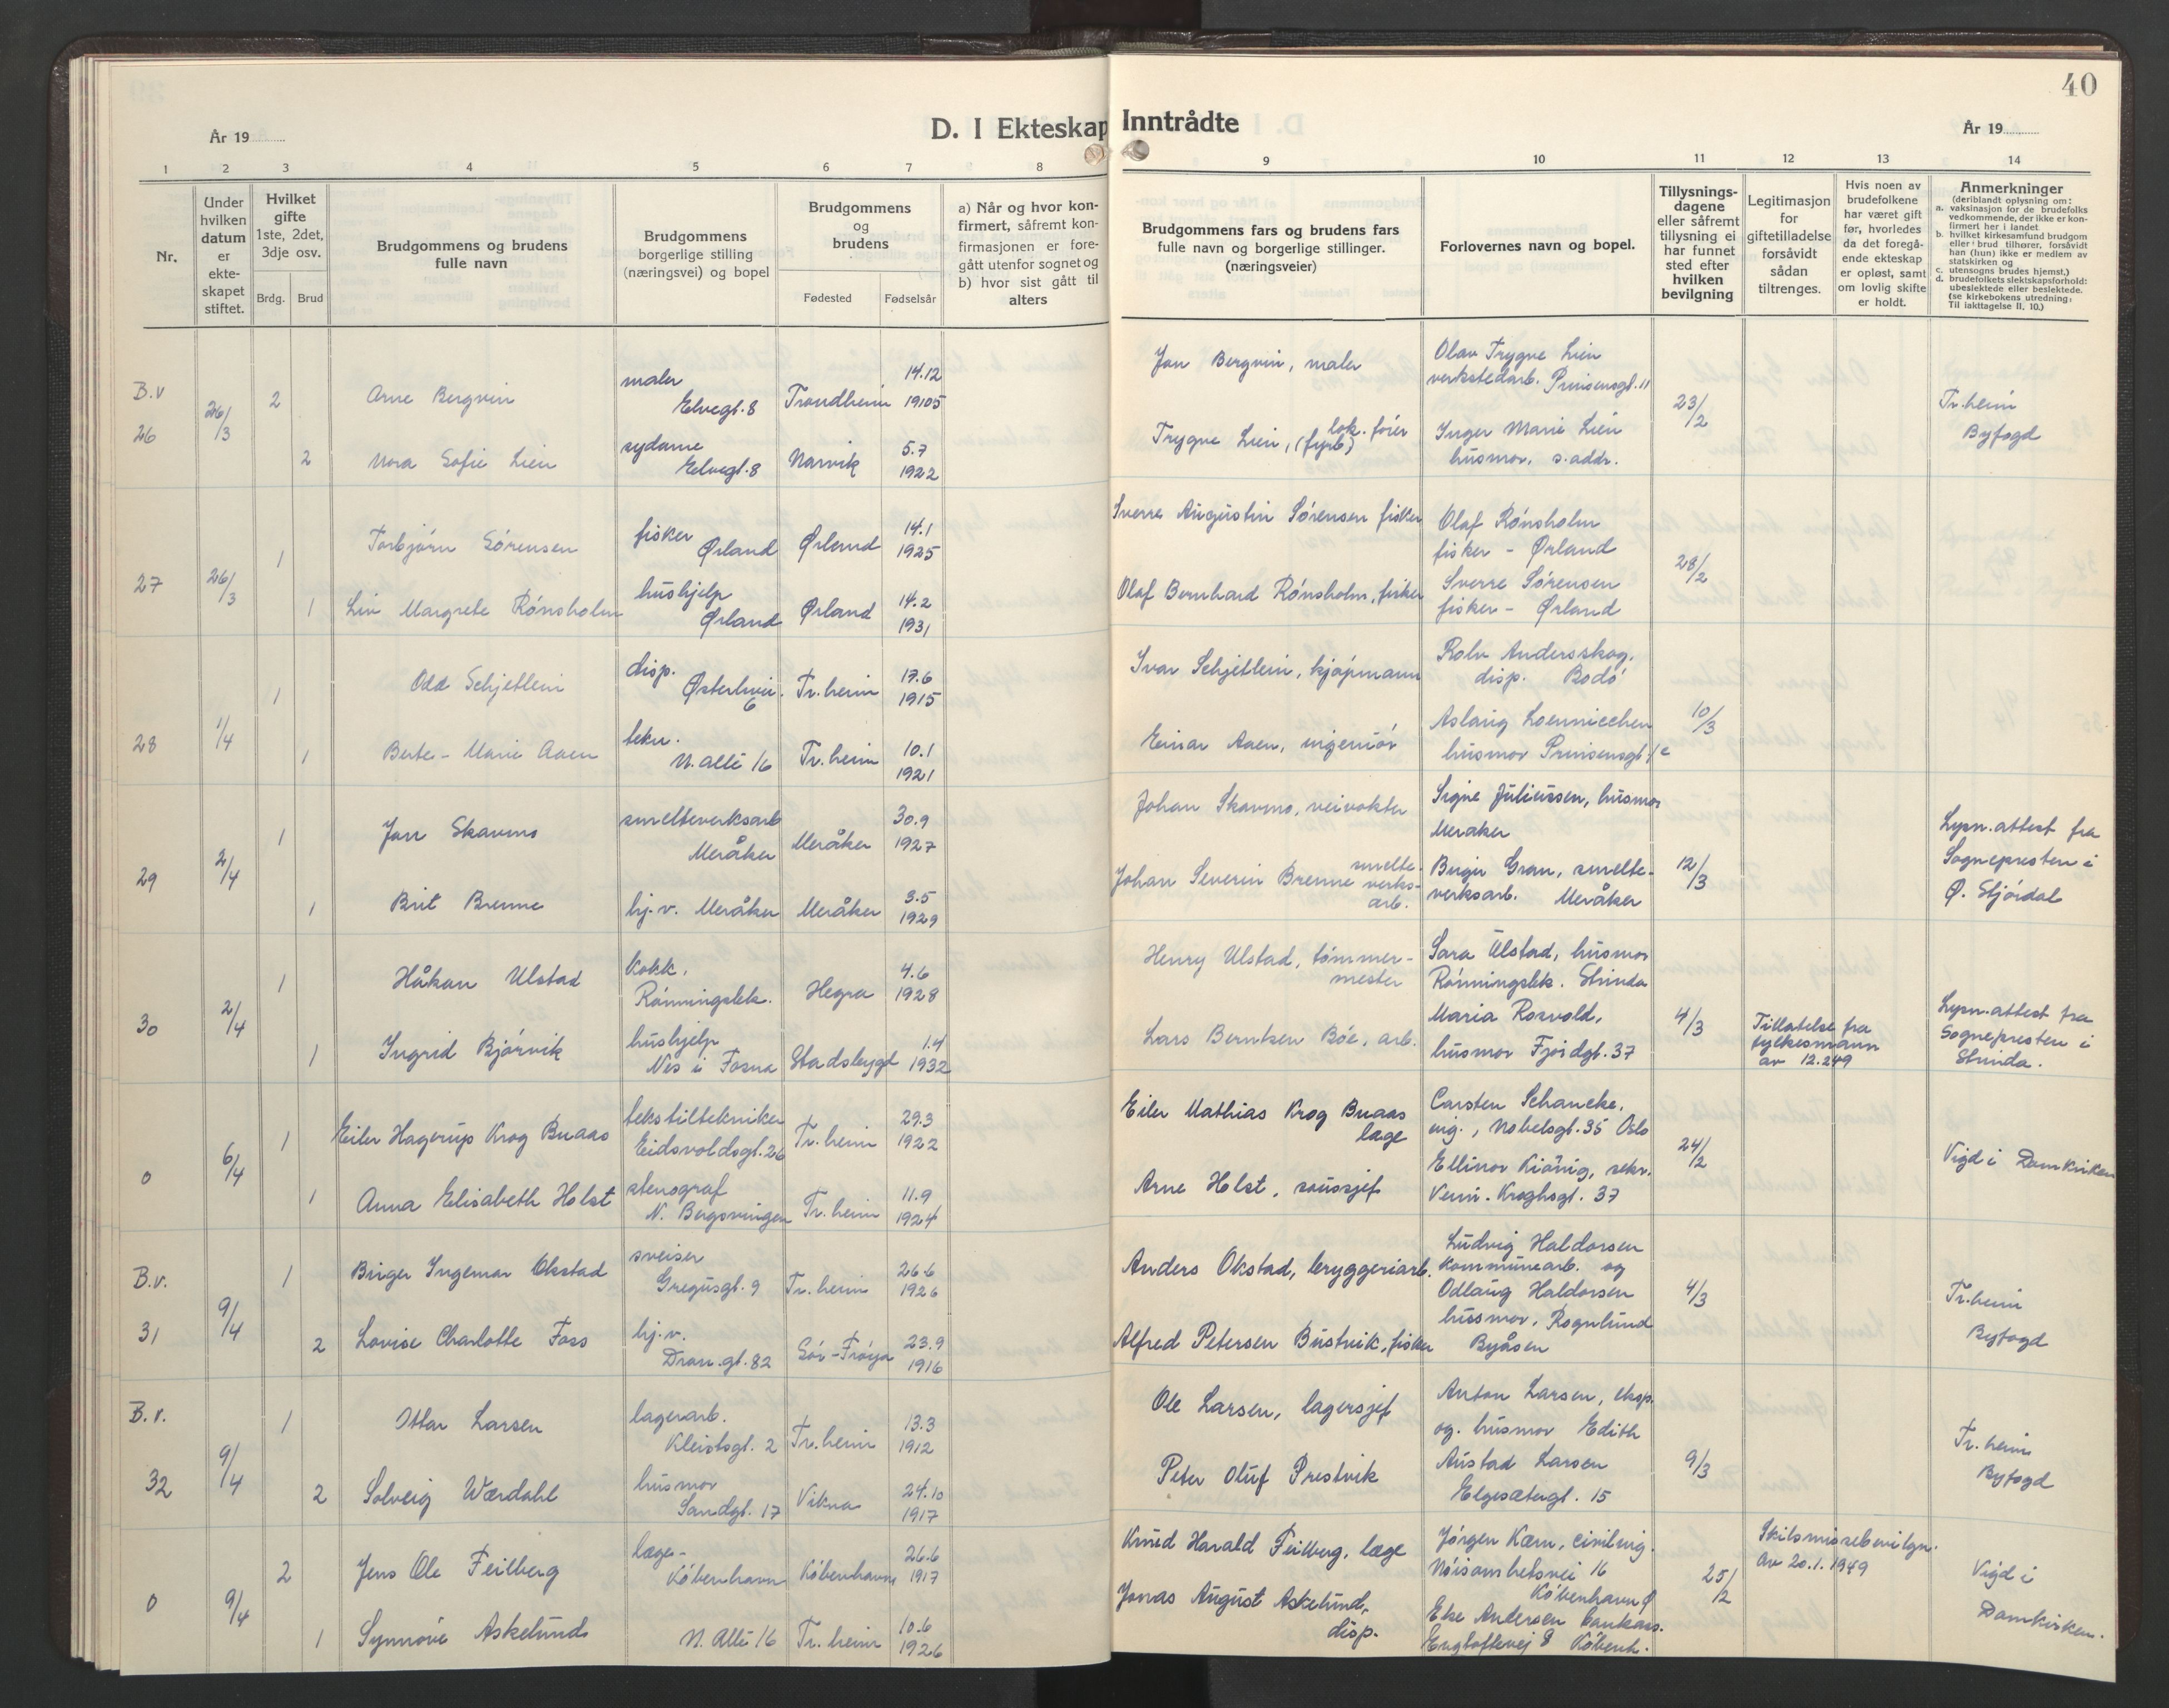 40
D. I Ekteskap Inntrådte
År 19
År 19
1 2 3 4 5 6 7 8 9 10 11 12 13 14
Nr.
Under hvilken datum er ekte-skapet stiftet.
Hvilket gifte 1ste, 2det, 3dje osv.
Brdg. Brud
Brudgommens og brudens fulle navn
Brudgommens borgerlige stilling (næringsvei) og bopel
Brudgommens og brudens
Fødested Fødselsår
a) Når og hvor kon-firmert, såfremt kon-firmasjonen er fore-gått utenfor sognet og
b) hvor sist gått til alters
Brudgommens fars og brudens fars fulle navn og borgerlige stillinger. (næringsveier)
Forlovernes navn og bopel.
Tillysnings-dagene eller såfremt tillysning ei har funnet sted efter hvilken bevilgning
Legitimasjon for giftetilladelse forsåvidt sådan tiltrenges.
Hvis noen av brudefolkene har været gift før, hvorledes da det foregå-ende ekteskap er opløst, samt om lovlig skifte er holdt.
Anmerkninger
(deriblandt oplysning om:
a. vaksinasjon for de brudefolks vedkommende, der ikke er kon-firmert her i landet
b. hvilket kirkesamfund brudgom eller brud tilhører, forsåvidt han (hun) ikke er medlem av statskirken og
c. utensogns brudes hjemst.)
d. brudefolkets slektskapsforhold: ubeslektede eller beslektede. (se kirkebokens utredning: Til iakttagelse II, 10.)
B.v 26 26/3 2 Arne Bergvin maler Elvegt. 8 Trondheim 14.12 1905 Jon Bergvin, maler Olav Trygve Lien verkstedarb. Prinsensgt. 11 23/2 Tr.heim Byfogd
2 Nora Sofie Lien sydame Elvegt. 8 Narvik 5.7 1922 Trygve Lien, (fyrb) lok. fører Inger Marie Lien husmor, s. addr.
27 26/3 1 Torbjørn Sørensen fisker Ørland Ørland 14.1 1925 Sverre Augustin Sørensen fisker Olaf Rønsholm fisker - Ørland 28/2
1 Liv Margrete Rønsholm hushjelp Ørland Ørland 14.2 1931 Olaf Bernhard Rønsholm, fisker Sverre Sørensen fisker - Ørland
28 1/4 1 Odd Schjetlein disp. Østerlivei. 6 Tr.heim 17.6 1915 Ivar Schjetlein, kjøpmann Rolv Andersskog. disp. Bodø 10/3
1 Berte-Marie Aaen tekn. N. allé 16 Tr.heim 10.1 1921 Einar Aaen, ingeniør Aslaug Loennecchen husmor Prinsensgt. 1c
29 2/4 1 Jon Skavmo smelteverksarb Meråker Meråker 30.9 1927 Johan Skavmo, veivokter Signe Juliussen, husmor Meråker 12/3 Lysn.attest fra Sognepresten i Ø. Stjørdal
1 Brit Brenne hj.v. Meråker Meråker 3.5 1929 Johan Severin Brenne smelte-verks-arb. Birger Gran, smelte-verksarb. Meråker
30 2/4 1 Håkon Ulstad kokk, Rønningslek. Hegra 4.6 1928 Henry Ulstad, tømmer-mester Sara Ulstad, husmor Rønningslek. Strinda 4/3 Tillatelse fra fylkesmann av 12.2 49 Lysn.attest fra Sognepresten i Strinda.
1 Ingrid Bjørvik hushjelp Nes i Fosna Stadsbygd 1.4 1932 Lars Berntsen Bøe, arb. Maria Rosvold, husmor Fjordgt. 37
0 6/4 1 Eiler Hagerup Krog Buaas tekstiltekniker Eidsvoldsgt. 26 Tr.heim 29.3 1922 Eiler Mathias Krog Buaas læge Carsten Schancke, ing., Nobelsgt. 35 Oslo 24/2 Vigd i Domkirken
1 Anna Elisabeth Holst stenograf N. Bergsvingen Tr.heim 11.9 1924 Arne Holst, sousjef Ellinor Kiønig, sekr. Venn. Kroghsgt. 37
B.v. 31 9/4 1 Birger Ingemar Okstad sveiser Gregusgt. 9 Tr.heim 26.6 1926 Anders Okstad, bryggeriarb. Ludvig Haldorsen kommunearb. og 4/3 Tr.heim Byfogd
2 Lovise Charlotte Foss hj.v. Dron.gt. 82 Sør-Frøya 23.9 1916 Alfred Petersen Bustvik, fisker Odlaug Haldorsen hussmor, Rognlund Byåsen
B.v. 32 9/4 1 Ottar Larsen lagerarb. Kleistsgt. 2 Tr.heim 13.3 1912 Ole Larsen, lagersjef Anton Larsen, eksp. og. husmor Edith 9/3 Tr.heim Byfogd
2 Solveig Wærdahl husmor Sandgt. 17 Vikna 24.10 1917 Peter Oluf Prestvik Austad Larsen Elgesætergt. 15
0 9/4 2 Jens Ole Feilberg læge- København København 26.6 1917 Knud Harald Feilberg, læge Jørgen Kærn, civiling. Nøisomhetsvei 16 København Ø 25/2 Skilsmissebevilgn. av 20.1.1949 Vigd i Domkirken.
1 Synnøve Askelund N. Allé 16 Tr.heim 10.6 1926 Jonas August Askelund, disp. Else Andersen bankass. Engtoftevej 8 Københ.